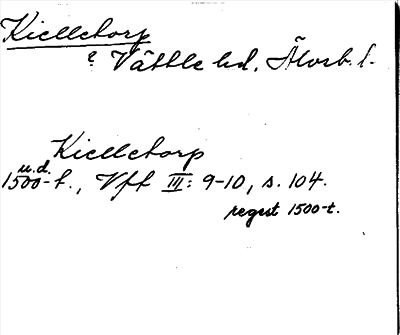 Kielletorp
? Vättle hd. Älvsb. l.
Kielletorp
u.d.
1500-t., Vft III: 9-10, s. 104.
regest 1500-t.